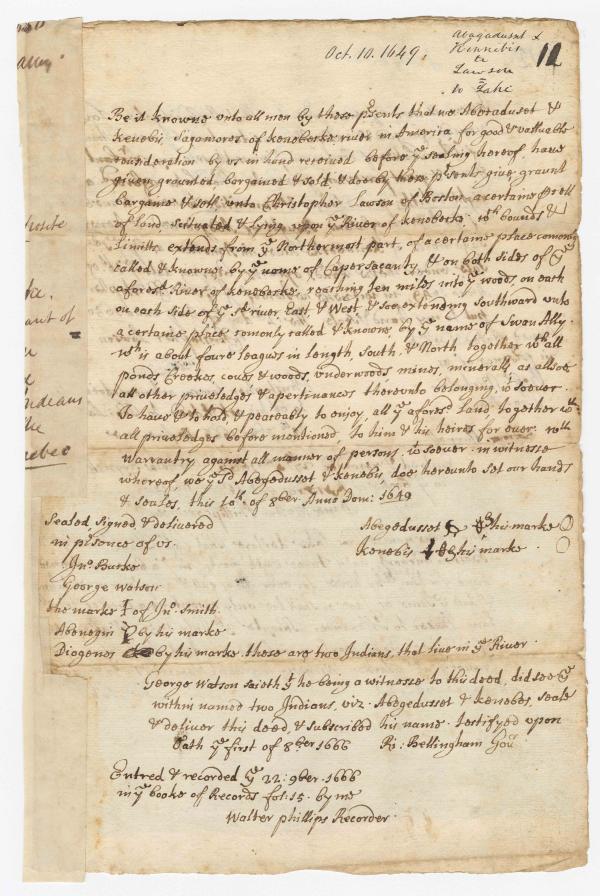 Oct. 10. 1649.
Abagadusset &
Kennebis
to
Lawson
to Lake
11
Be it knowne unto all men by these psents that we Abegaduset &
Kenebis, Sagamores of Kenebecke river in America for good & valluable
consideration by us in hand received before ye sealing hereof, have
given graunted bargained & sold, & doe by these psents give graunt
bargaine & sell unto Christopher Lawson of Boston a certaine prcell
of land scituated & lying upon ye River of Kenebecke: wch bounds &
Limitts extends from ye Northermost part, of a certaine place comonly
called & knowne by ye name of Capersacanty, & on both sides of ye
aforesd River of Kenebecke, reaching ten miles into ye woods, on each
on each side of ye sd river, East, & West, & soe extending Southward unto
a certaine place comonly called & knowne by ye name of Swan Ally.
wch is about foure leagues in length, South, & North together wth all
ponds Creekes, coves & woods, underwoods mines, mineralls, as allsoe
all other priveledges & apertinances thereunto belonging, wtsoever.
To have & to hold & peaceably to enjoy, all ye aforesd Land, together wth
all priveledges before mentioned, to him & his heires for ever: wth
warrantry against all manner of persons, wtsoever. in witnesse
whereof we ye sd Abegedusset & Kenebis, doe hereunto set our hands
& seales, this 10th of 8ber Anno Dom: 1649
Sealed, signed, & delivered
in prsence of us.
Abegedusset his marke
Kenebis his marke
Jno. Burke
George Watson
the marke of Jno. Smith.
Abenegin by his marke
Diogenes by his marke. these are two Indians, that live in ye River.
George Watson saieth yt he being a witnesse to this deed, did see ye
within named two Indians, viz. Abegedusset & Kenebes, seale
& deliver this deed, & subscribed his name. testifyed upon
Oath ye first of 8ber 1666 Ri: Bellingham Gour
Entred & recorded ye 22: 9ber. 1666
in ye booke of Records fol: 15. by me
Walter Phillips Recorder.
ant of
Indians